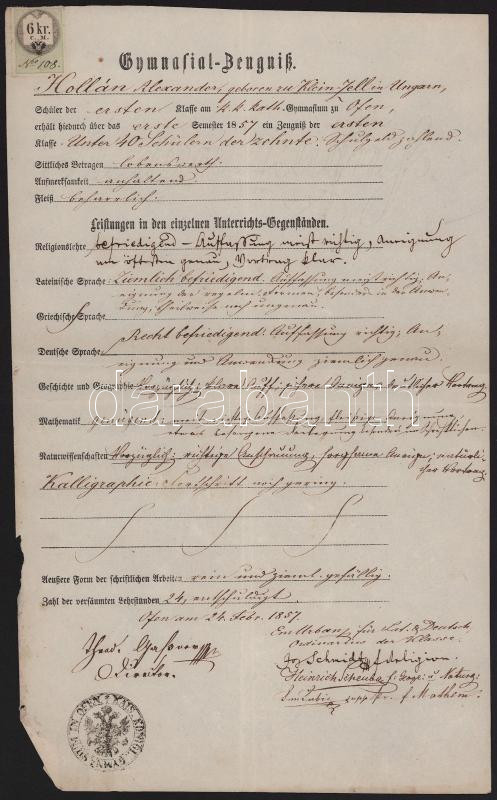 6 kr.
C. M.
No 108.
Gymnasial-Zeugniß.
Hollán Alexander, geboren zu Klein Zell in Ungarn,
Schüler der ersten Klasse am k. k. kath. Gymnasium zu Ofen,
erhält hiedurch über das erste Semester 1857 ein Zeugniß der ersten
Klasse. Unter 40 Schülern der zehnte. Schulgeld zahlend.
Sittliches Betragen lobenswerth.
Aufmerksamkeit anhaltend.
Fleiß beharrlich.
Leistungen in den einzelnen Unterrichts-Gegenständen.
Religionslehre befriedigend – Auffassung meist richtig, Aneignung
am öftesten genau, Vortrag klar.
Lateinische Sprache Ziemlich befriedigend. Auffassung meist richtig, An-
eignung der regulären Formen, besonders in der Anwen-
dung, theilweise noch ungenau.
Griechische Sprache
Recht befriedigend: Auffassung richtig, An-
Deutsche Sprache eignung und Anwendung ziemlich genau.
Geschichte und Geographie Vorzüglich: deutlicher Vortrag
databanh
Mathematik genügend;
Naturwissenschaften Vorzüglich: richtige Anschauung, sorgsame Aneign., natürli-
cher Vortrag.
Kalligraphie: Fortschritt noch gering.
Aeußere Form der schriftlichen Arbeiten rein und ziemL. gefällig.
Zahl der versäumten Lehrstunden 24, entschuldigt.
Ofen am 24. Febr. 1857.
Em Urban, für Lat. & Deutsch,
Ordinarius der Klasse.
Theod.
Director.
Jos Schmidt f Religion.
Heinrich Scheuba f: Geogr: u Naturg:
suppl. f Mathem:
KAIS. KÖNIGL. GYMNASIUM IN OFEN